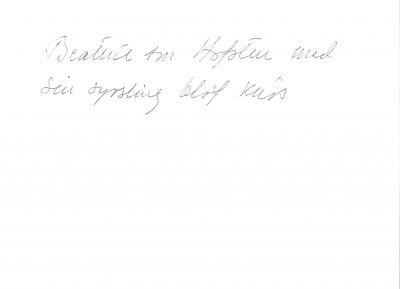 Beatrice von Hofsten med
sin syssling Olof Knös